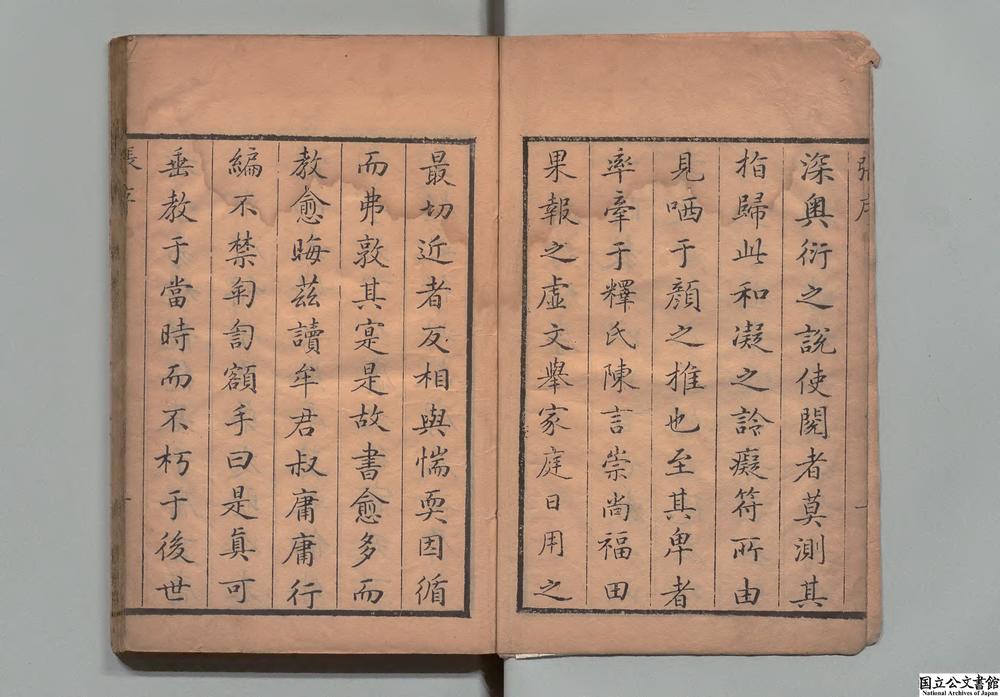 深奥衍之說使閱者莫測其
指歸此和凝之詅癡符所由
見哂于顏之推也至其卑者
率牽于釋氏陳言崇尚福田
果報之虛文舉家庭日用之
最切近者反相與惴耎因循
而弗敦其寔是故書愈多而
教愈晦茲讀牟君叔庸庸行
編不禁匍匐額手曰是眞可
垂教于當時而不朽于後世
国立公文書館
National Archives of Japan